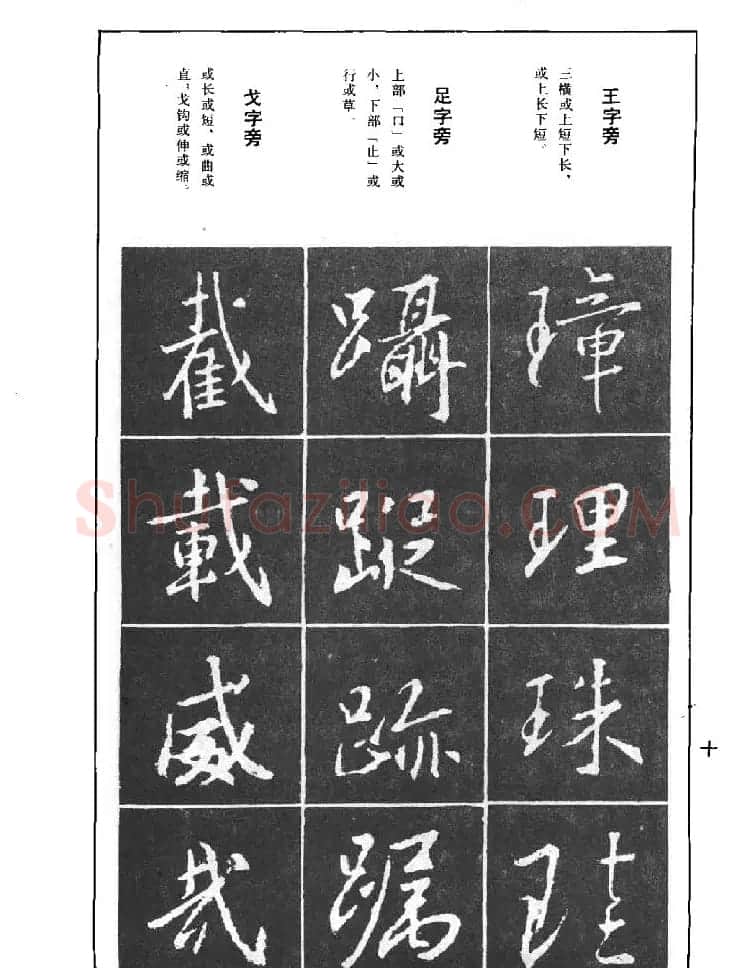 王字旁
三横或上短下长，
或上长下短。
璋
理
珠
足字旁
上部「口」或大或
小，下部「止」或
行或草。
蹑
跡
戈字旁
或长或短，或曲或
直，戈钩或伸或缩。
截
載
威
Shufaziliao.COM